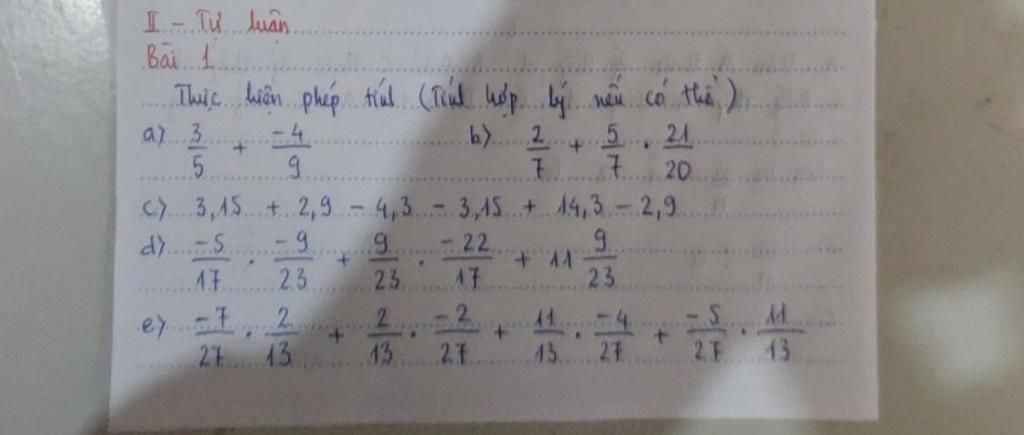 II - Tự luận
Bài 1
Thực hiện phép tính (Tính hợp lý nếu có thể)
a) 3/5 + -4/9 b) 2/7 + 5/7 . 21/20
c) 3,15 + 2,9 - 4,3 - 3,15 + 14,3 - 2,9
d) -5/17 . -9/23 + 9/23 . -22/17 + 11 9/23
e) -7/27 . 2/13 + 2/13 . -2/27 + 11/13 . -4/27 + -5/27 . 11/13